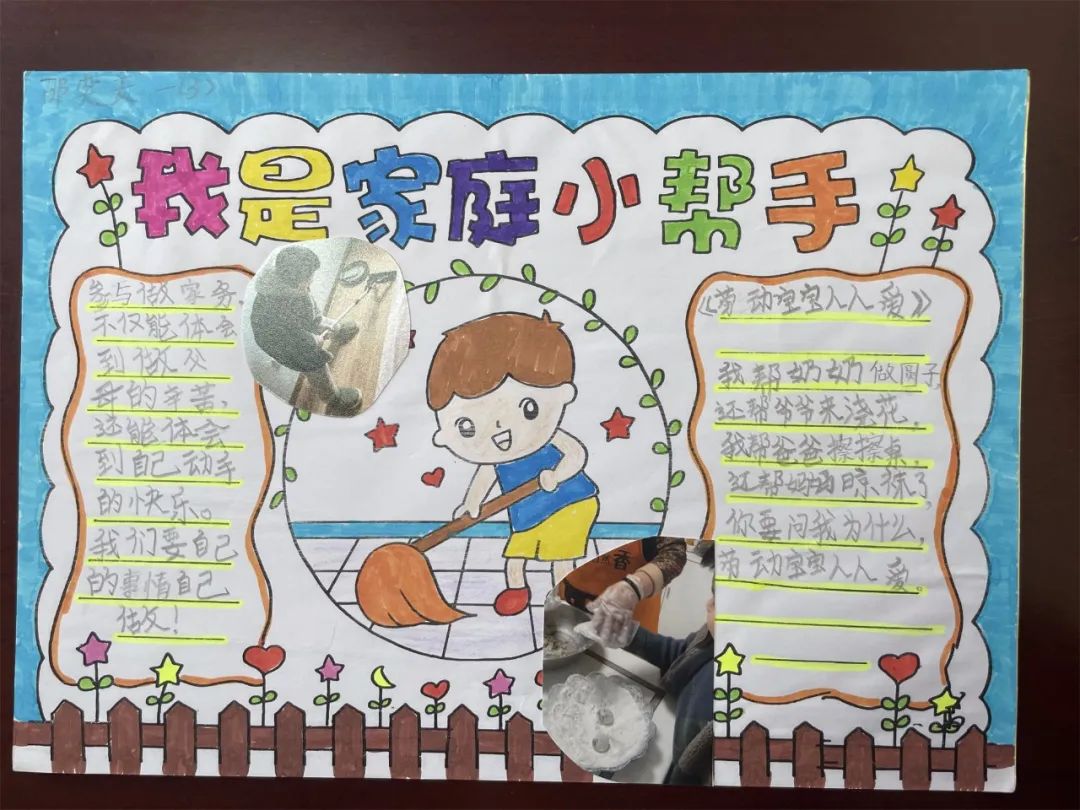 我是家庭小帮手
参与做家务,
不仅能体会
到做父
母的辛苦,
还能体会
到自己动手
的快乐。
我们要自己
的事情自己
做!
《劳动宝宝人人爱》
我帮奶奶做圆子
还帮爷爷来浇花,
我帮爸爸擦擦桌,
还帮妈妈晾袜了,
你要问我为什么,
劳动宝宝人人爱。
香